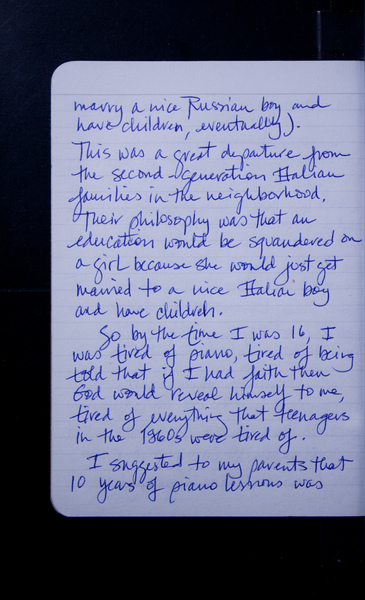 marry a nice Russian boy and
have children, eventually).
This was a great departure from
the second-generation Italian
families in the neighborhood.
Their philosophy was that an
education would be squandered on
a girl because she would just get
married to a nice Italian boy
and have children.
So by the time I was 16, I
was tired of piano, tired of being
told that if I had faith then
God would reveal himself to me,
tired of everything that teenagers
in the 1960s were tired of.
I suggested to my parents that
10 years of piano lessons was